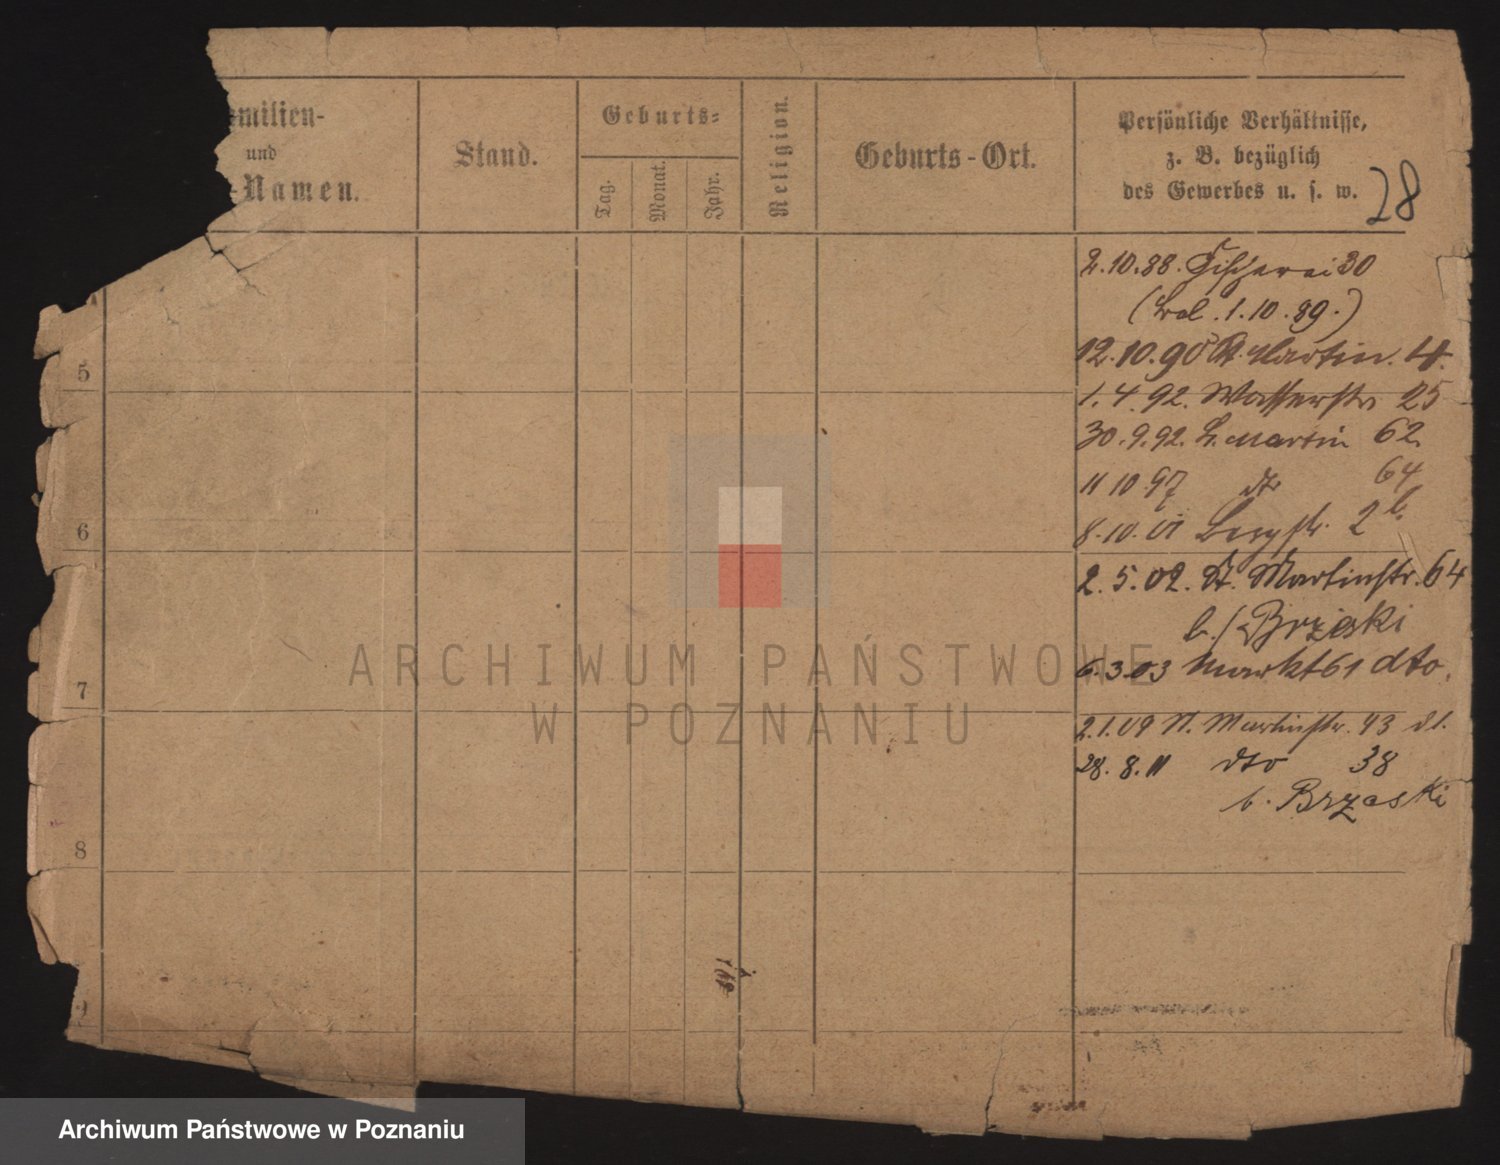 amilien-
und
-Namen.
Stand.
Geburts-
Tag.
Monat.
Jahr.
Religion.
Geburts-Ort.
Persönliche Verhältnisse,
z. B. bezüglich
des Gewerbes u. s. w.
28
2.10.88. Fischerei 30
1.10.89.)
12.10.90 St. Martin. 4.
5
1.4.92. Wasserstr 25
30.9.92. St. Martin 62.
11 10 97 dto 64
6
8.10.01 Bergstr. 2 b.
2.5.02. St. Martinstr. 64
b./Brzeski
7
6.3.03 Markt 61 dto.
2.1.09 St. Martinstr. 43
28.8.11 dto 38
b. Brzeski
8
9
ARCHIWUM PAŃSTWOWE
W POZNANIU
Archiwum Państwowe w Poznaniu